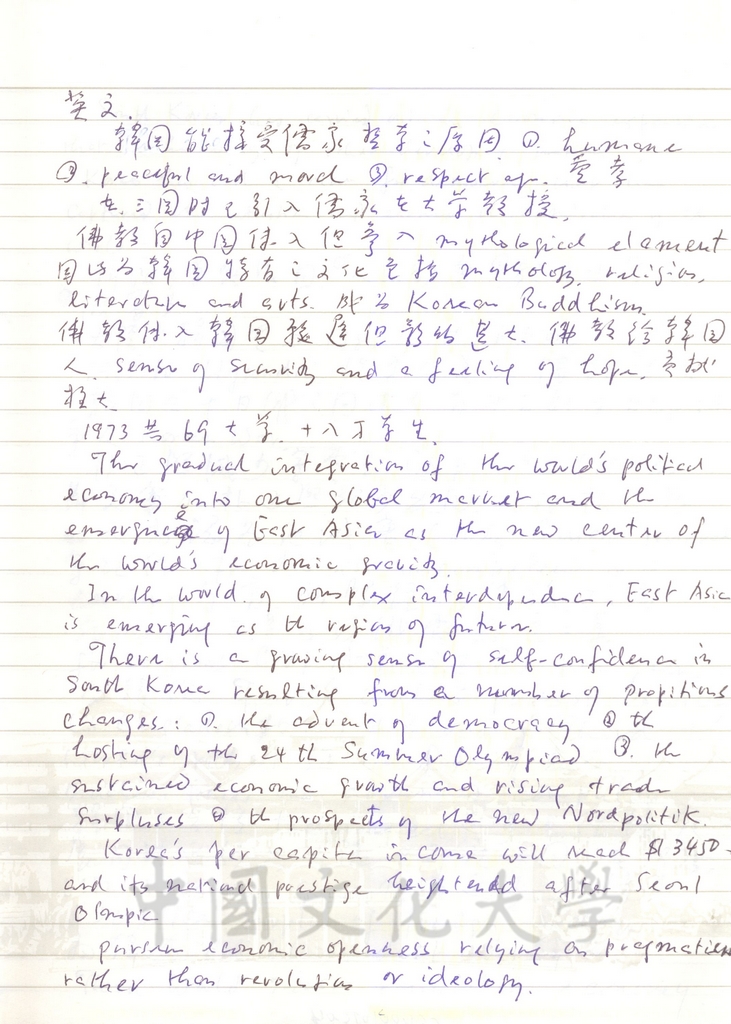 英文.
韓国能接受儒家哲学之原因 ①. humane
②. peaceful and moral ③. respect age. 孝
在三国时已引入儒家在大学教授.
佛教自中国传入但掺入 mythological element
因此为韓国特有之文化包括 mythology, religion,
literature and arts. 成为 Korean Buddhism.
佛教传入韓国较遲但影响甚大. 佛教给韓国
人 sense of security and a feeling of hope.
極大.
1973 共 69 大学. 十八万学生.
The gradual integration of the world's political
economy into one global market and the
emergence of East Asia as the new center of
the world's economic gravity.
In the world of complex interdependence, East Asia
is emerging as the region of future.
There is a growing sense of self-confidence in
South Korea resulting from a number of propitious
changes: ①. the advent of democracy ② the
hosting of the 24th Summer Olympiad ③. the
sustained economic growth and rising trade
surpluses ④ the prospects of the new Nordpolitik.
Korea's per capita income will reach $3450-
and its national prestige heightened after Seoul
Olmpic
pursue economic openness relying on pragmatism
rather than revolution or ideology.
中國文化大學